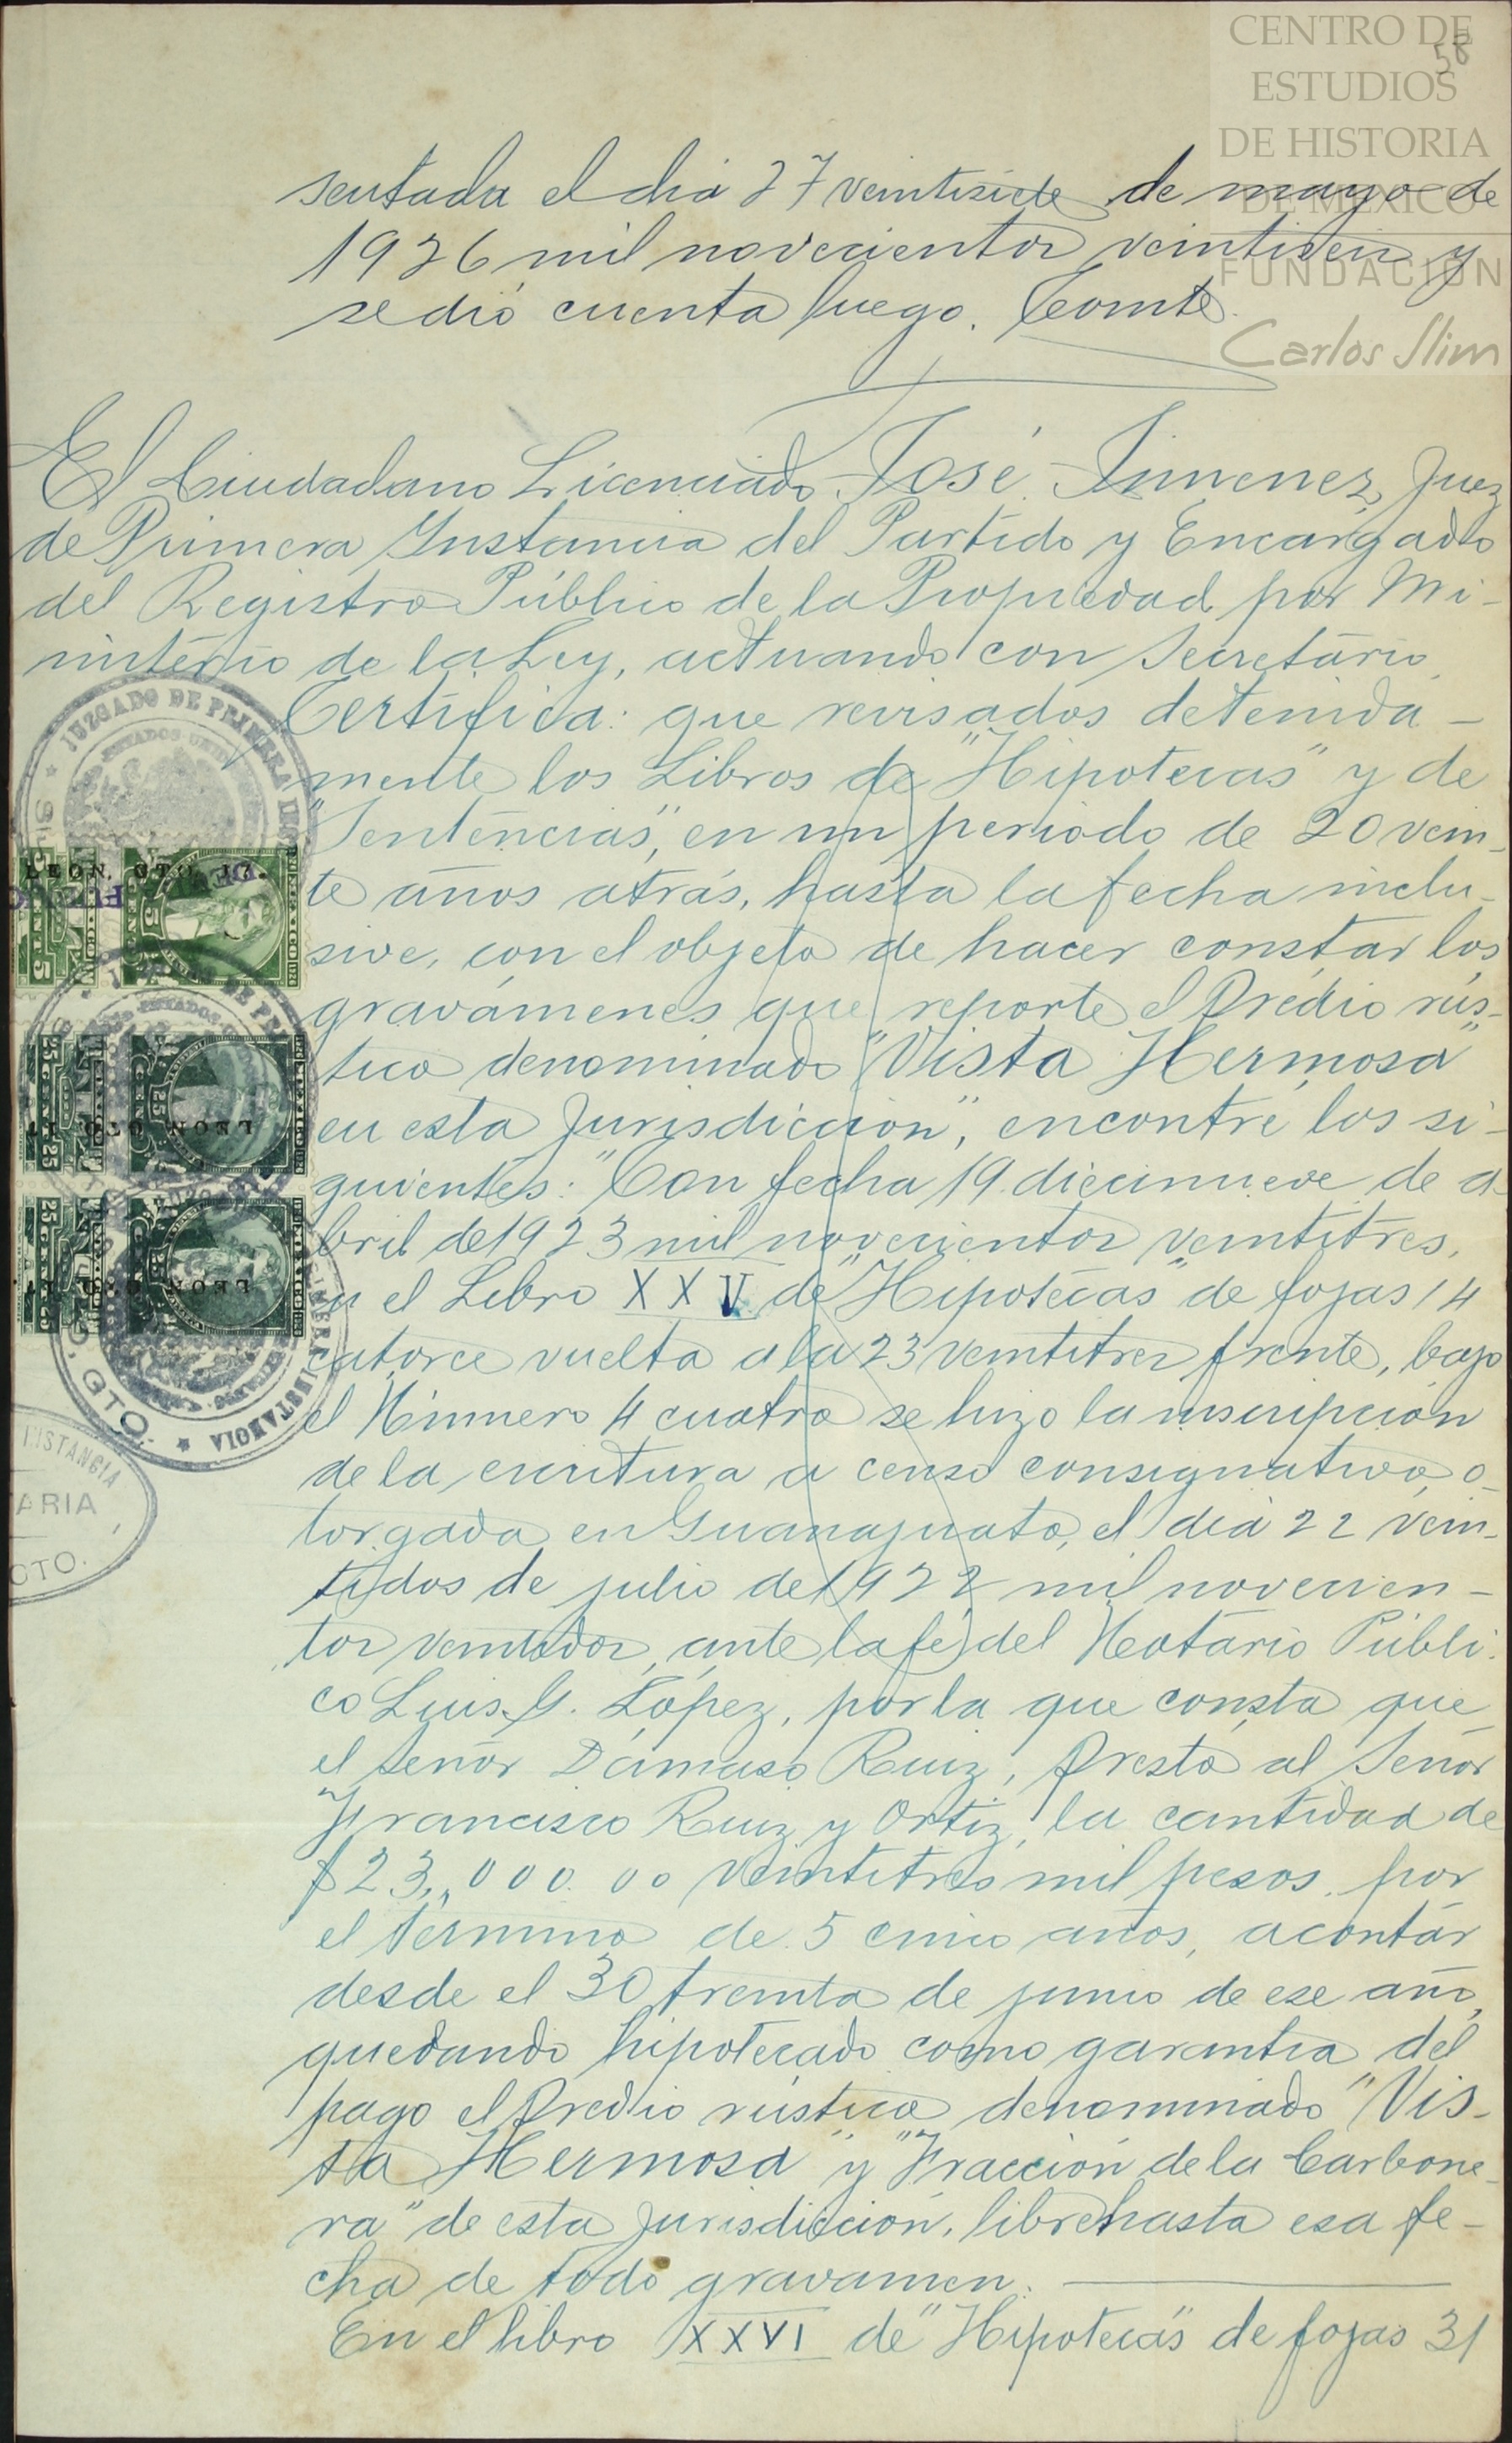 CENTRO DE
ESTUDIOS
DE HISTORIA
DE MÉXICO
FUNDACIÓN
Carlos Slim
58
sentada el dia 27 veintisiete de mayo de
1926 mil novecientos veintiseis y
se dió cuenta luego. Conste.
El Ciudadano Licenciado José Jimenez, Juez
de Primera Instancia del Partido y Encargado
del Registro Público de la Propiedad por Mi-
nisterio de la Ley, actuando con Secretario
Certifica: que revisados detenida-
mente los Libros de "Hipotecas" y de
"Sentencias", en un periodo de 20 vein-
te años atrás, hasta la fecha inclu-
sive, con el objeto de hacer constar los
gravámenes que reporte el Predio rús-
tico denominado "Vista Hermosa"
en esta Jurisdiccion", encontré los si-
guientes: "Con fecha 19 diecinueve de a-
bril de 1923 mil novecientos veintitres,
en el Libro XXV de "Hipotecas" de fojas 14
catorce vuelta a la 23 veintitres frente, bajo
el Número 4 cuatro se hizo la inscripción
de la escritura a censo consignativo, o-
torgada en Guanajuato, el dia 22 vein-
tidos de julio de 1922 mil novecien-
tos veintidos, ante la fe del Notario Públi-
co Luis G. López, por la que consta que
el señor Dámaso Ruiz, prestó al Señor
Francisco Ruiz y Ortiz, la cantidad de
$23,,000.00 veintitres mil pesos, por
el término de 5 cinco años, acontár
desde el 30 treinta de junio de ese año,
quedando hipotecado como garantia del
pago el Predio rústico denominado "Vis-
ta Hermosa" y "Fracción de la Carbone-
ra" de esta Jurisdicción, libre hasta esa fe-
cha de todo gravamen.
En el libro XXVI de "Hipotecas" de fojas 31
JUZGADO DE PRIMERA INS
ESTADOS UNIDOS
LEON, GTO. 17.
5
CENTS 5
25
25 CENTS
LEON GTO
25
25 CENTS
LEON GTO
PRIMERA INSTANCIA
GTO.
INSTANCIA
ARIA
GTO.